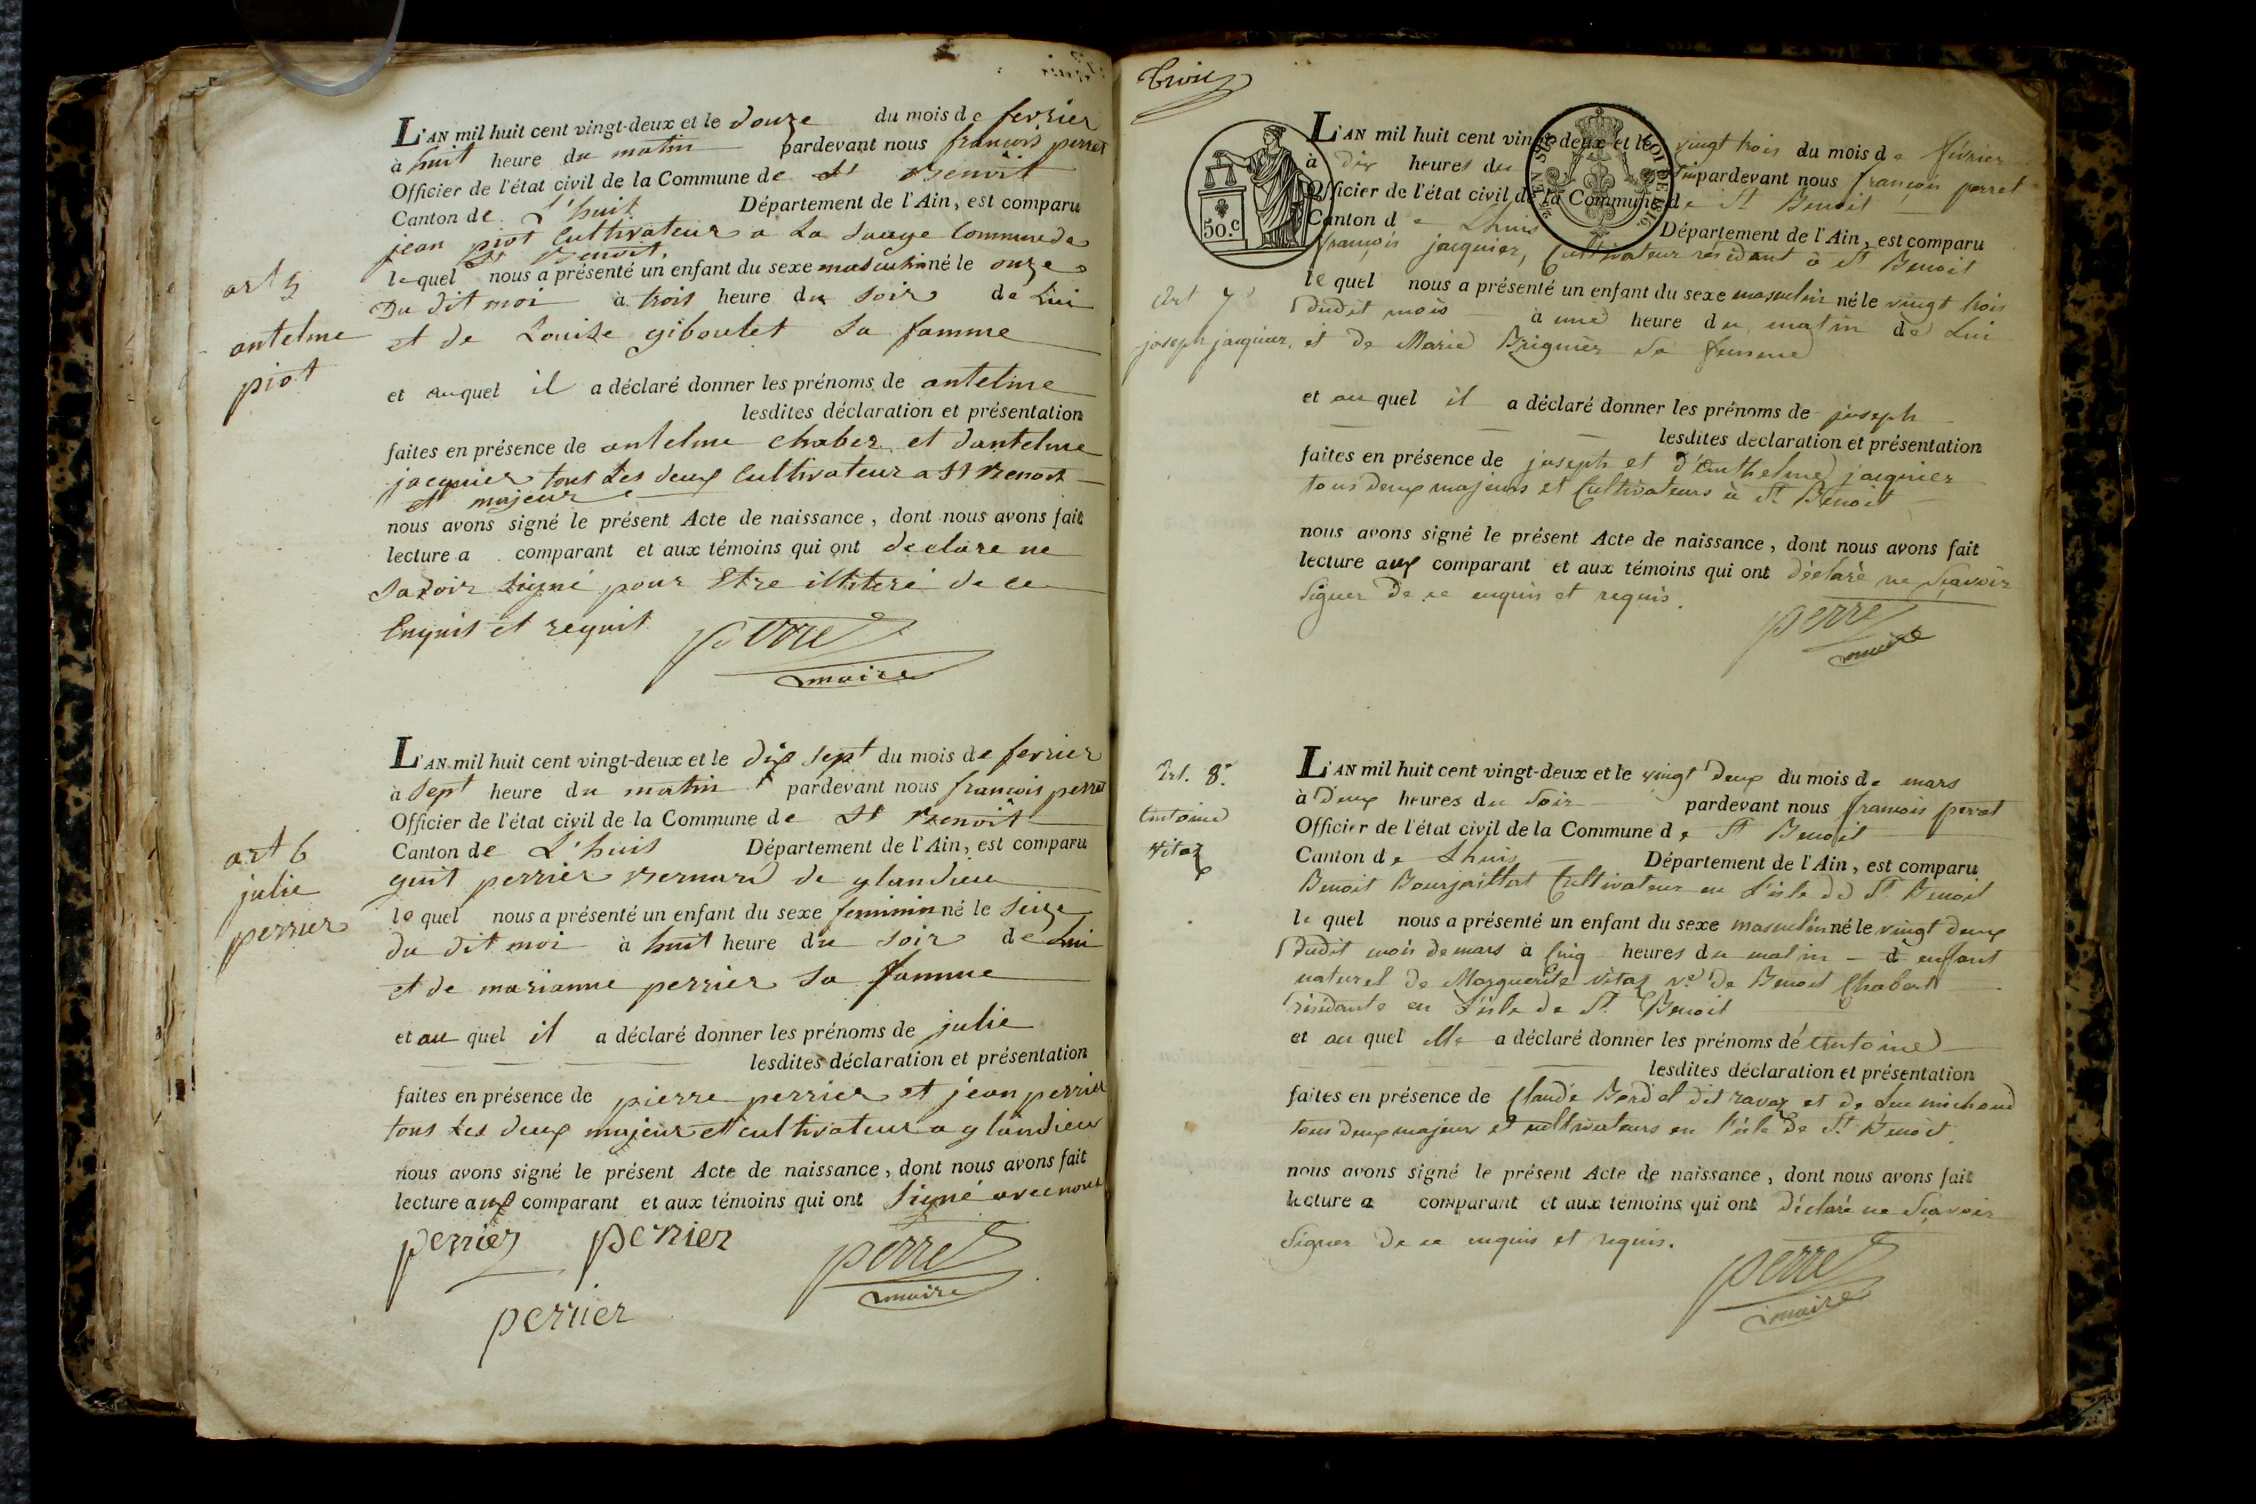 L'AN mil huit cent vingt-deux et le douze du mois de fevrier
à huit heure du matin pardevant nous francois perret
Officier de l'état civil de la Commune de St Benoit
Canton de L'huit Département de l'Ain, est comparu
jean piot Cultivateur a La Sauge Commune de
St Benoit,
le quel nous a présenté un enfant du sexe masculin né le onze
Du dit moi à trois heure du soir de Lui
et de Louise giboulet Sa famme
art 5
antelme
piot
et au quel il a déclaré donner les prénoms de antelme
lesdites déclaration et présentation
faites en présence de antelme chaber et dantelme
jacquier tous Les deux Cultivateur a St Benoit
et majeur
nous avons signé le présent Acte de naissance, dont nous avons fait
lecture a comparant et aux témoins qui ont declare ne
Savoir Signé pour Etre illiteré de ce
Enquit et requit
perret
maire
L'AN mil huit cent vingt-deux et le dix sept du mois de fevrier
à Sept heure du matin pardevant nous francois perret
Officier de l'état civil de la Commune de St Benoit
Canton de L'huis Département de l'Ain, est comparu
perrier Bernard de glandieu
le quel nous a présenté un enfant du sexe feminin né le Seize
du dit moi à huit heure du soir de Lui
et de marianne perrier Sa famme
art 6
julie
perrier
et au quel il a déclaré donner les prénoms de julie
lesdites déclaration et présentation
faites en présence de pierre perrier et jean perrier
tous Les deux majeur et cultivateur a glandieu
nous avons signé le présent Acte de naissance, dont nous avons fait
lecture aux comparant et aux témoins qui ont Signé avec nous
perrier perrier
perret
maire
perrier
Trois
50.c
LOI DE 1816
L'AN mil huit cent vingt-deux et le vingt trois du mois de février
à dix heures du pardevant nous françois perret
Officier de l'état civil de la Commune de St Benoit
Canton de Lhuis Département de l'Ain, est comparu
françois jacquier, Cultivateur résidant à St Benoit
le quel nous a présenté un enfant du sexe masculin né le vingt trois
dudit mois à une heure du matin de Lui
et de Marie Brignier Sa femme
Art 7
joseph jacquier.
et au quel il a déclaré donner les prénoms de joseph
lesdites declaration et présentation
faites en présence de joseph et d'Anthelme jacquier
tous deux majeurs et Cultivateurs à St Benoit
nous avons signé le présent Acte de naissance, dont nous avons fait
lecture aux comparant et aux témoins qui ont déclaré ne Sçavoir
Signer de ce enquis et requis.
perret
maire
L'AN mil huit cent vingt-deux et le vingt deux du mois de mars
à Deux heures du Soir pardevant nous francois perret
Officier de l'état civil de la Commune de St Benoit
Canton de Lhuis Département de l'Ain, est comparu
Benoit Bourjaillat Cultivateur en L'isle de St Benoit
le quel nous a présenté un enfant du sexe masculin né le vingt deux
Dudit mois de mars à Cinq heures du matin - d enfant
naturel de Marguerite Vitoz Ve de Benoit Chabert
résidante en L'isle de St Benoit
Art. 8.
Antoine
Vitoz
et au quel elle a déclaré donner les prénoms dé Antoine
lesdites déclaration et présentation
faites en présence de Claude Bordel dit ravaz et de Luc michoud
tous deux majeurs et cultivateurs en l'isle de St Benoit.
nous avons signé le présent Acte de naissance, dont nous avons fait
lecture a comparant et aux témoins qui ont déclaré ne Sçavoir
Signer de ce enquis et requis.
perret
maire